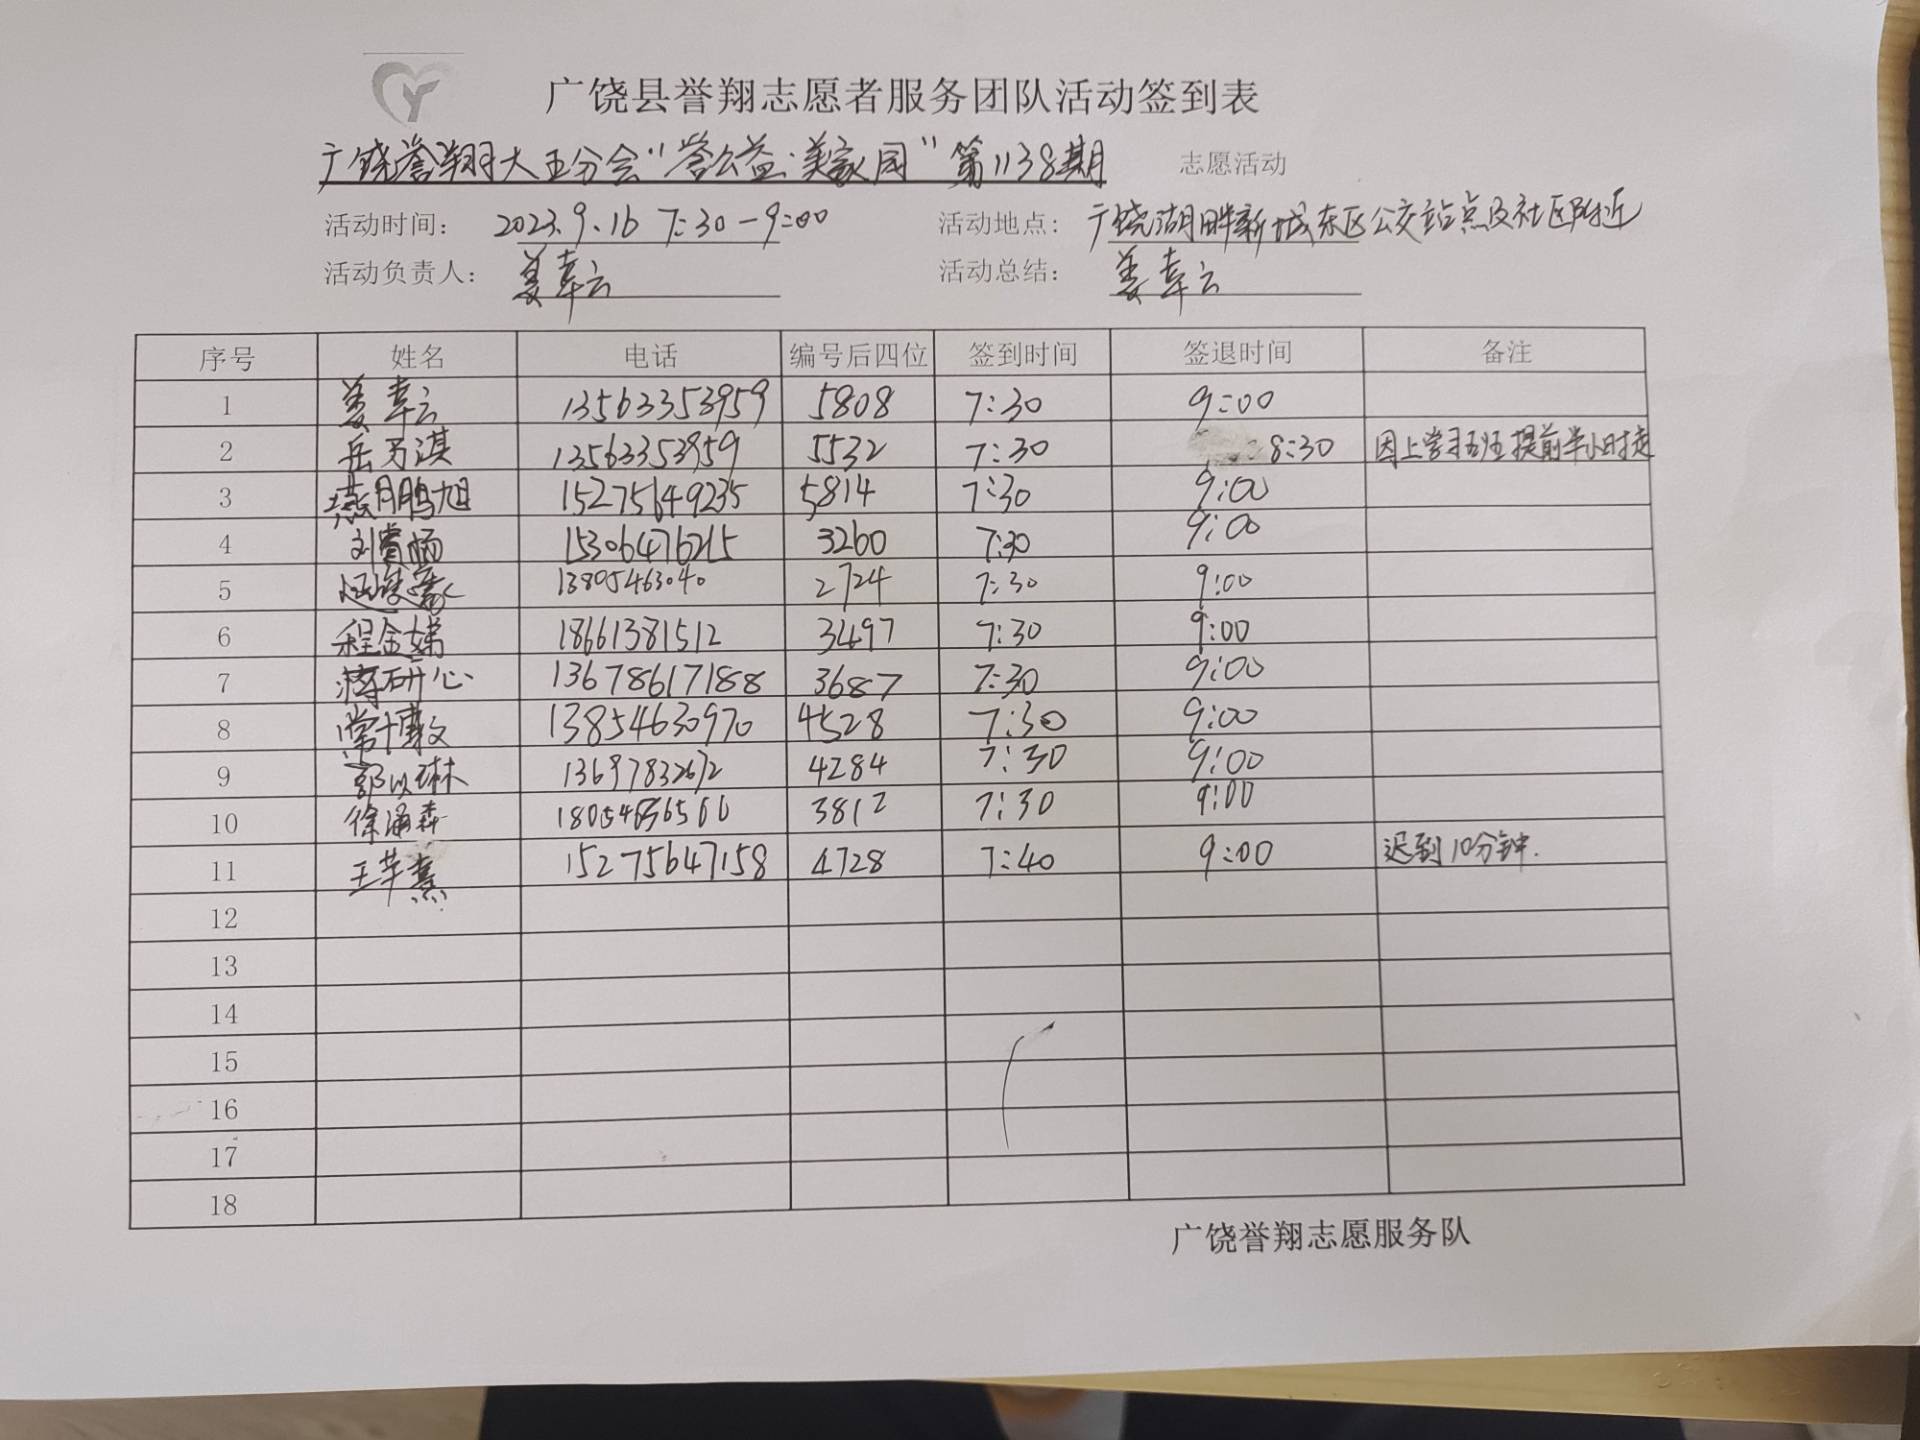 广饶县誉翔志愿者服务团队活动签到表
广饶誉翔大王分会“誉公益·美家园”第1138期 志愿活动
活动时间: 2023.9.16 7:30-9:00 活动地点: 广饶湖畔新城东区公交站点及社区附近
活动负责人: 姜幸云 活动总结: 姜幸云
序号 姓名 电话 编号后四位 签到时间 签退时间 备注
1 姜幸云 13563353959 5808 7:30 9:00
2 岳 淇 13563353959 5532 7:30 8:30 因上学习班提前半小时走
3 燕鹏旭 15275649235 5814 7:30 9:00
4 刘 15306476215 3260 7:30 9:00
5 13805463040 2724 7:30 9:00
6 程金娣 18661381512 3497 7:30 9:00
7 蒋研心 136786171888 3687 7:30 9:00
8 常博文 13854630970 4528 7:30 9:00
9 郭以琳 4284 7:30 9:00
10 徐涵森 3812 7:30 9:00
11 王芊熹 15275647158 4728 7:40 9:00 迟到10分钟.
12
13
14
15
16
17
18
广饶誉翔志愿服务队